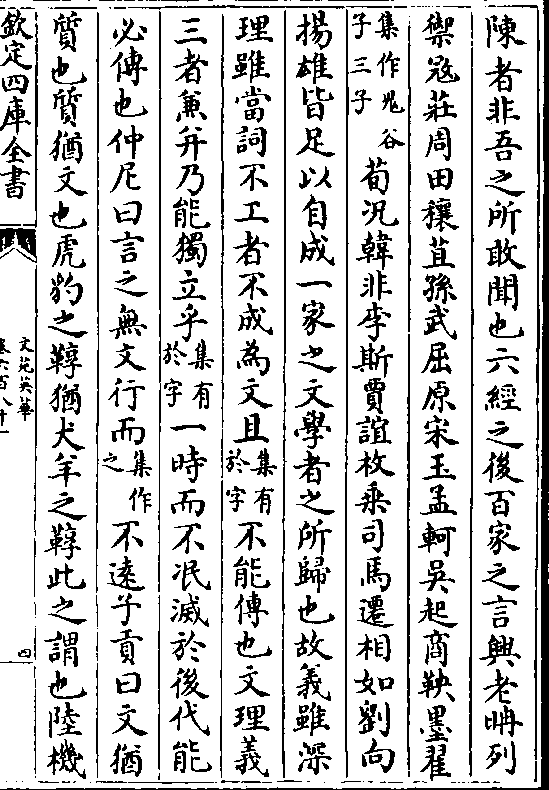 陳者非吾之所敢聞也六經之後百家之言興老聃列
禦寇莊周田穰苴孫武屈原宋玉孟軻吳起商鞅墨翟
集作鬼谷
子三子
荀況韓非李斯賈誼枚乘司馬遷相如劉向
揚雄皆足以自成一家之文學者之所歸也故義雖深
理雖當詞不工者不成為文且集有於字不能傳也文理義
三者兼并乃能獨立乎集有於字一時而不泯滅於後代能
必傳也仲尼曰言之無文行而集作之不遠子貢曰文猶
質也質猶文也虎豹之鞟猶犬羊之鞟此之謂也陸機
欽定四庫全書
文苑英華
卷六百八十一
四